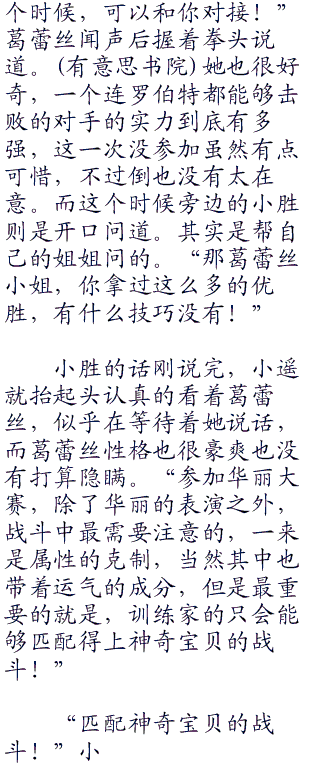 个时候，可以和你对接！”
葛蕾丝闻声后握着拳头说
道。(有意思书院)她也很好
奇，一个连罗伯特都能够击
败的对手的实力到底有多
强，这一次没参加虽然有点
可惜，不过倒也没有太在
意。而这个时候旁边的小胜
则是开口问道。其实是帮自
己的姐姐问的。“那葛蕾丝
小姐，你拿过这么多的优
胜，有什么技巧没有！”
小胜的话刚说完，小遥
就抬起头认真的看着葛蕾
丝，似乎在等待着她说话，
而葛蕾丝性格也很豪爽也没
有打算隐瞒。“参加华丽大
赛，除了华丽的表演之外，
战斗中最需要注意的，一来
是属性的克制，当然其中也
带着运气的成分，但是最重
要的就是，训练家的只会能
够匹配得上神奇宝贝的战
斗！”
“匹配神奇宝贝的战
斗！”小